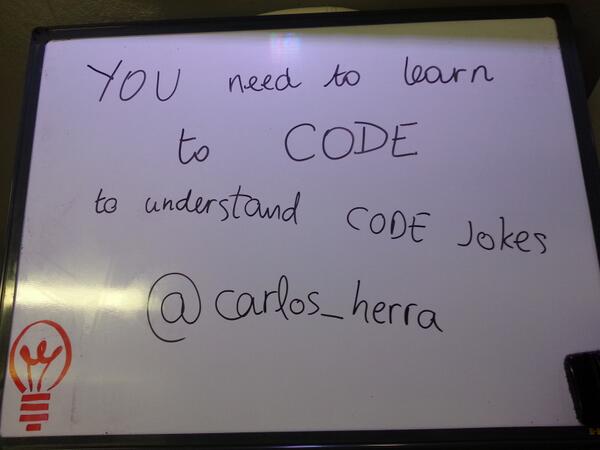 YOU need to learn
to CODE
to understand CODE Jokes
@carlos_herra